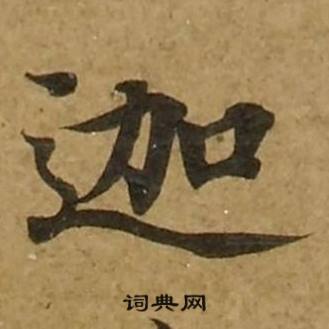 迦
词典网